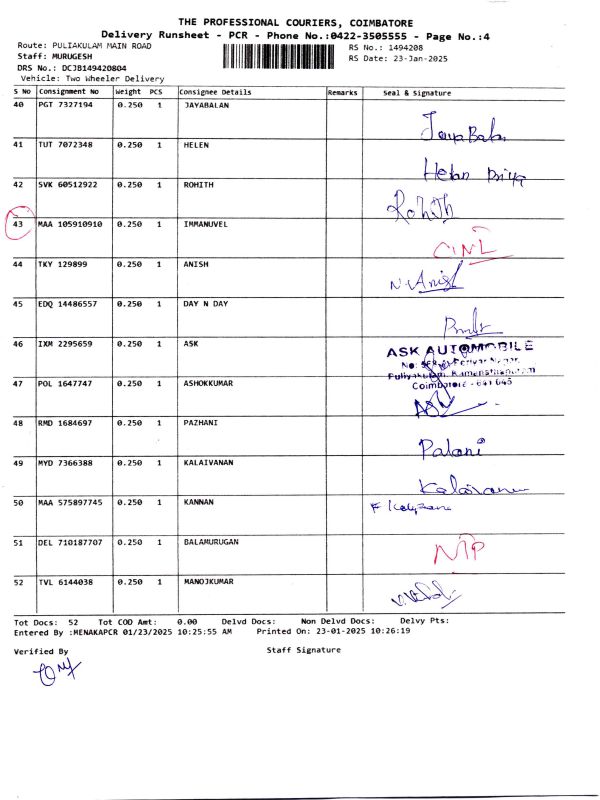 THE PROFESSIONAL COURIERS, COIMBATORE
Delivery Runsheet - PCR - Phone No.:0422-3505555 - Page No.:4
Route: PULIAKULAM MAIN ROAD RS No.: 1494208
Staff: MURUGESH RS Date: 23-Jan-2025
DRS No.: DCJB149420804
Vehicle: Two Wheeler Delivery
S No Consignment No Weight PCS Consignee Details Remarks Seal & Signature
40 PGT 7327194 0.250 1 JAYABALAN
JayaBalan
41 TUT 7072348 0.250 1 HELEN
Helan Priya
42 SVK 60512922 0.250 1 ROHITH
Rohith
43 MAA 105910910 0.250 1 IMMANUVEL
44 TKY 129899 0.250 1 ANISH
N. Anish
45 EDQ 14486557 0.250 1 DAY N DAY
46 IXM 2295659 0.250 1 ASK
ASK AUTOMOBILE
Periyar Nagar,
Puliyakulam, Ramanathapuram
Coimbatore - 641 045
47 POL 1647747 0.250 1 ASHOKKUMAR
48 RMD 1684697 0.250 1 PAZHANI
Palani
49 MYD 7366388 0.250 1 KALAIVANAN
50 MAA 575897745 0.250 1 KANNAN
51 DEL 710187707 0.250 1 BALAMURUGAN
NTP
52 TVL 6144038 0.250 1 MANOJKUMAR
Tot Docs: 52 Tot COD Amt: 0.00 Delvd Docs: Non Delvd Docs: Delvy Pts:
Entered By :MENAKAPCR 01/23/2025 10:25:55 AM Printed On: 23-01-2025 10:26:19
Verified By Staff Signature